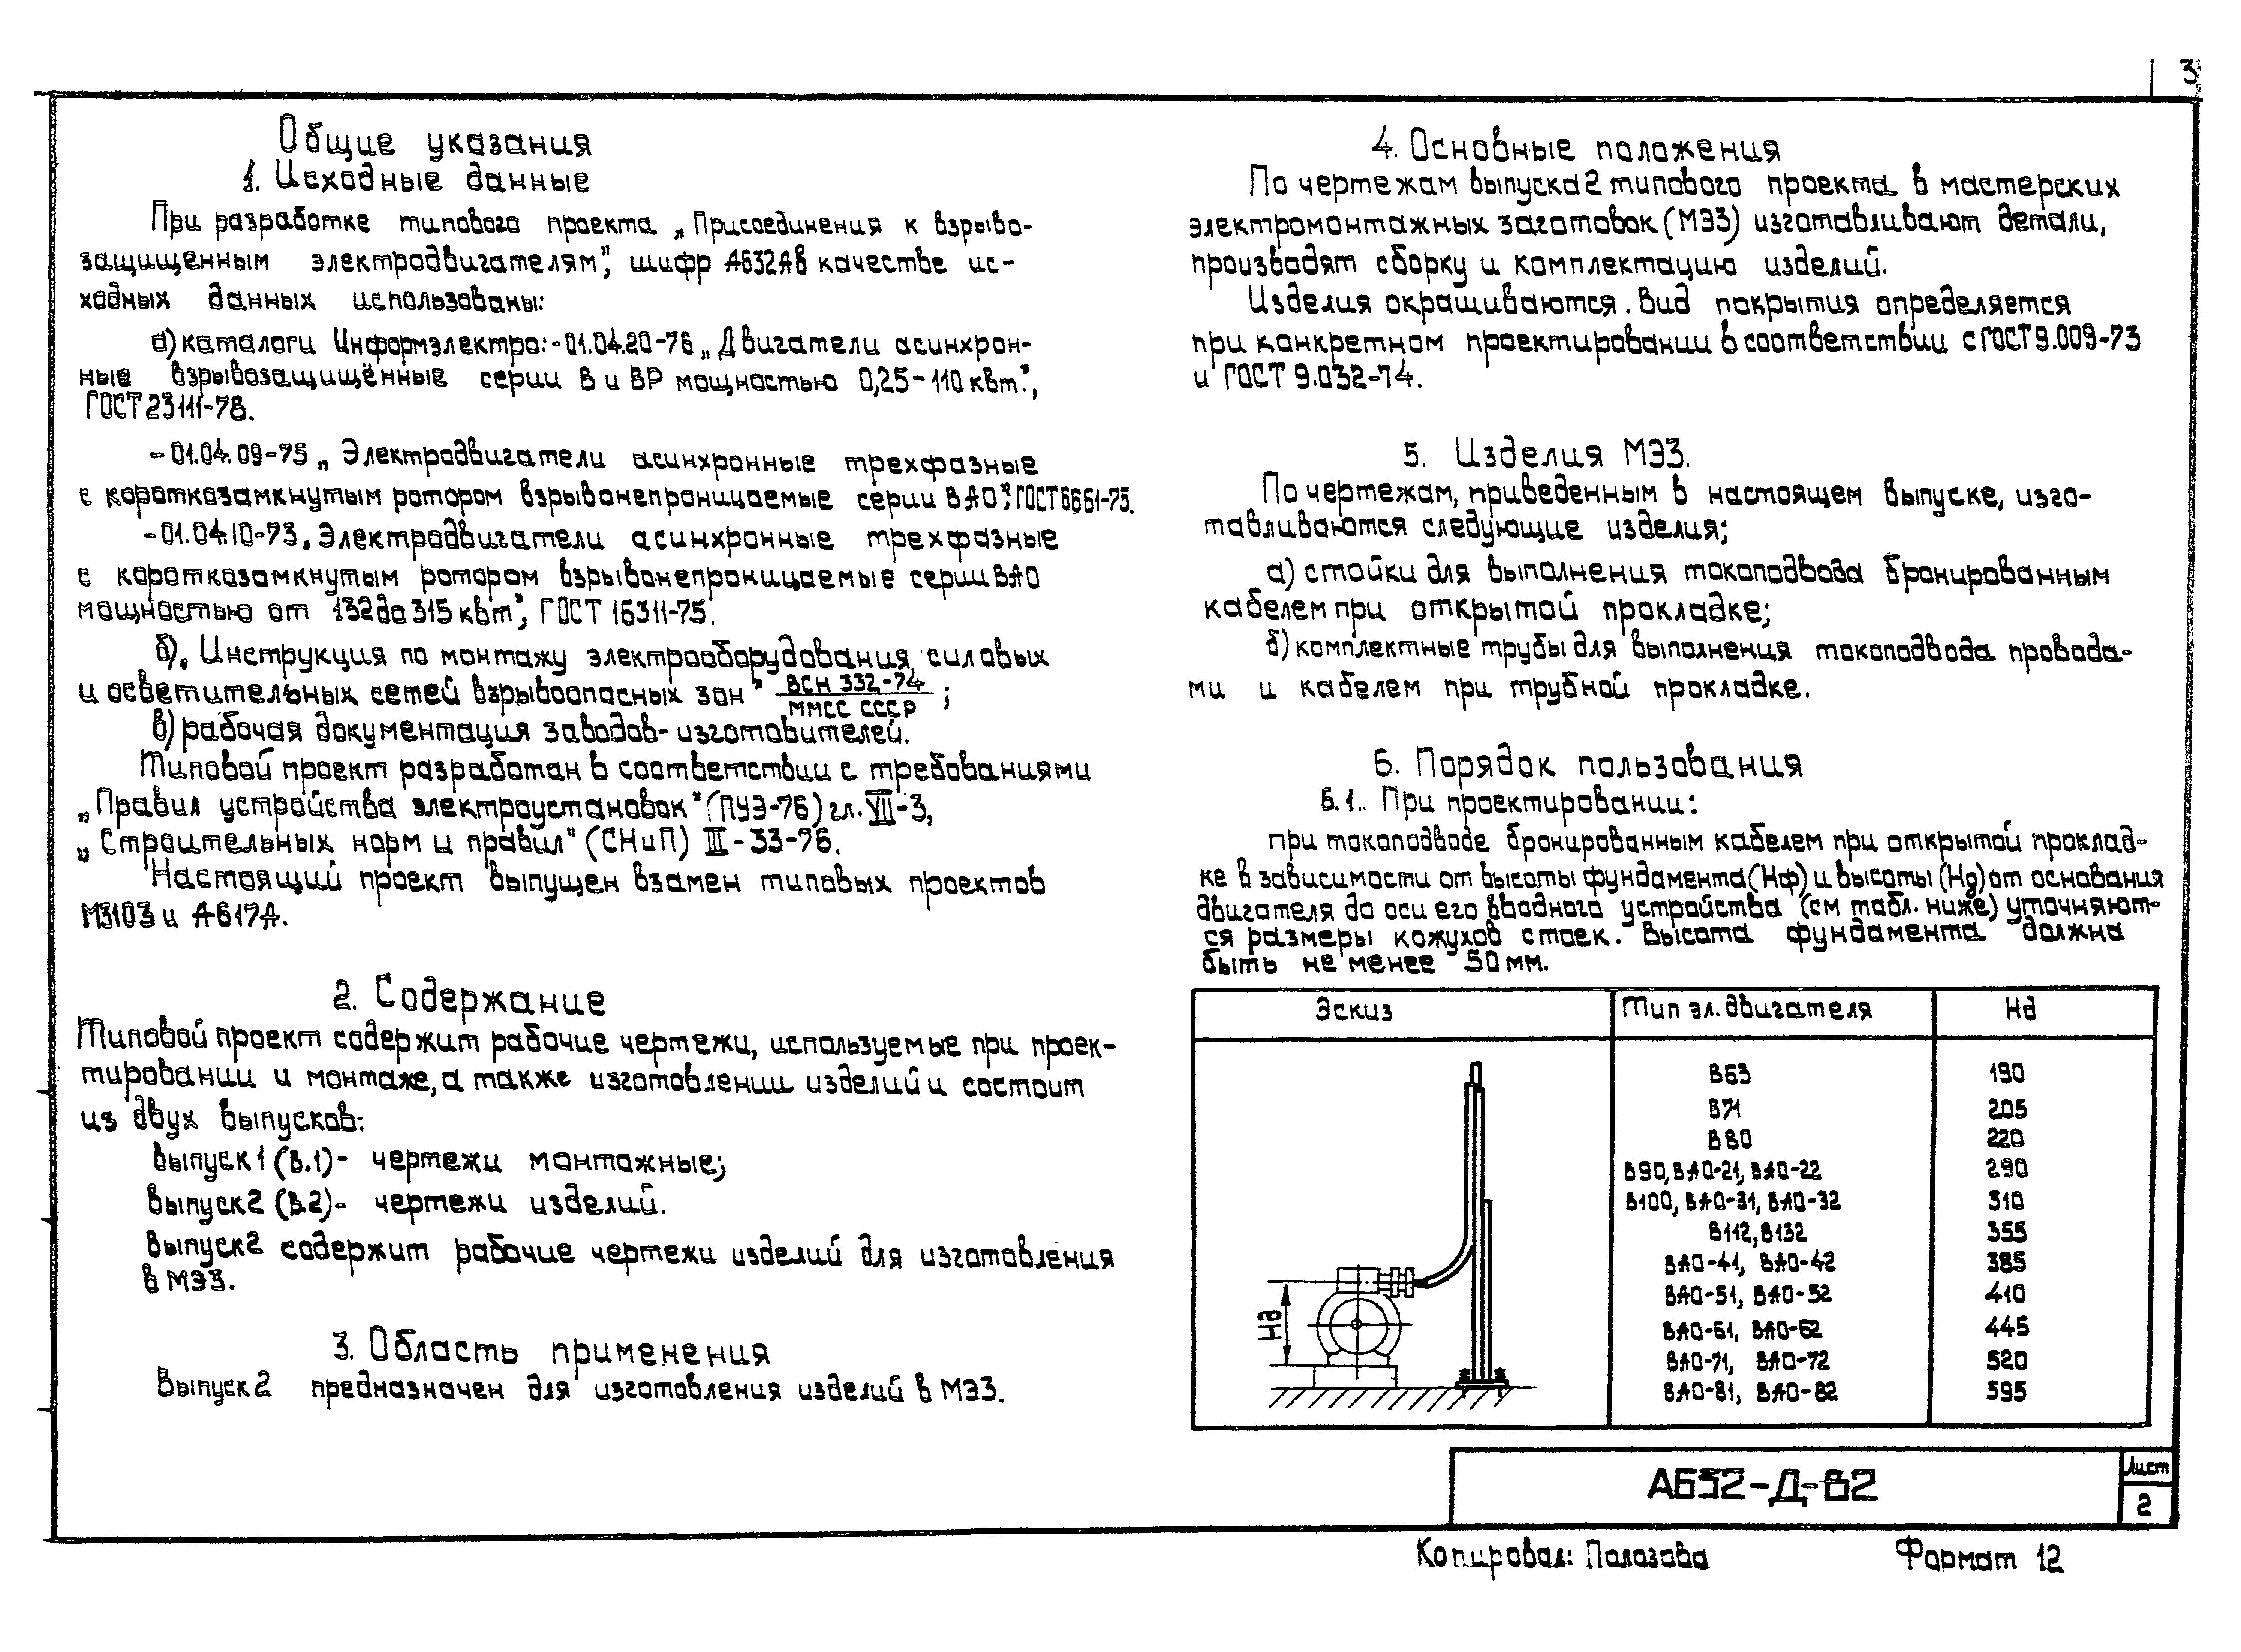 3
Общие указания
1. Исходные данные
При разработке типового проекта „Присоединения к взрыво-
защищенным электродвигателям", шифр А632А в качестве ис-
ходных данных использованы:
а) каталоги Информэлектро: -01.04.20-76 „Двигатели асинхрон-
ные взрывозащищённые серии В и ВР мощностью 0,25-110 квт",
ГОСТ 23111-78.
-01.04.09-75 „Электродвигатели асинхронные трехфазные
с короткозамкнутым ротором взрывонепроницаемые серии ВАО", ГОСТ 6661-75.
-01.04.10-73 „Электродвигатели асинхронные трехфазные
с короткозамкнутым ротором взрывонепроницаемые серии ВАО
мощностью от 132 до 315 квт", ГОСТ 16311-75.
б) „Инструкция по монтажу электрооборудования, силовых
и осветительных сетей взрывоопасных зон" ВСН 332-74
ММСС СССР ;
в) рабочая документация заводов-изготовителей.
Типовой проект разработан в соответствии с требованиями
„Правил устройства электроустановок" (ПУЭ-76) гл. VII-3,
„Строительных норм и правил" (СНиП) III-33-76.
Настоящий проект выпущен взамен типовых проектов
М3103 и А617А.
2. Содержание
Типовой проект содержит рабочие чертежи, используемые при проек-
тировании и монтаже, а также изготовлении изделий и состоит
из двух выпусков:
Выпуск 1 (В.1) - чертежи монтажные;
Выпуск 2 (В.2) - чертежи изделий.
Выпуск 2 содержит рабочие чертежи изделий для изготовления
в МЭЗ.
3. Область применения
Выпуск 2 предназначен для изготовления изделий в МЭЗ.
4. Основные положения
По чертежам выпуска 2 типового проекта в мастерских
электромонтажных заготовок (МЭЗ) изготавливают детали,
производят сборку и комплектацию изделий.
Изделия окрашиваются. Вид покрытия определяется
при конкретном проектировании в соответствии с ГОСТ 9.009-73
и ГОСТ 9.032-74.
5. Изделия МЭЗ.
По чертежам, приведенным в настоящем выпуске, изго-
тавливаются следующие изделия;
а) стойки для выполнения токоподвода бронированным
кабелем при открытой прокладке;
б) комплектные трубы для выполнения токоподвода провода-
ми и кабелем при трубной прокладке.
6. Порядок пользования
6.1. При проектировании:
при токоподводе бронированным кабелем при открытой проклад-
ке в зависимости от высоты фундамента (Нф) и высоты (Нд) от основания
двигателя до оси его вводного устройства (см табл. ниже) уточняют-
ся размеры кожухов стоек. Высота фундамента должна
быть не менее 50 мм.
Эскиз Тип эл. двигателя Нд
В63 190
В71 205
В80 220
В90, ВАО-21, ВАО-22 290
В100, ВАО-31, ВАО-32 310
В112, В132 355
ВАО-41, ВАО-42 385
ВАО-51, ВАО-52 410
ВАО-61, ВАО-62 445
ВАО-71, ВАО-72 520
ВАО-81, ВАО-82 595
Нд
А632-Д-В2
Лист
2
Копировал: Полозова Формат 12